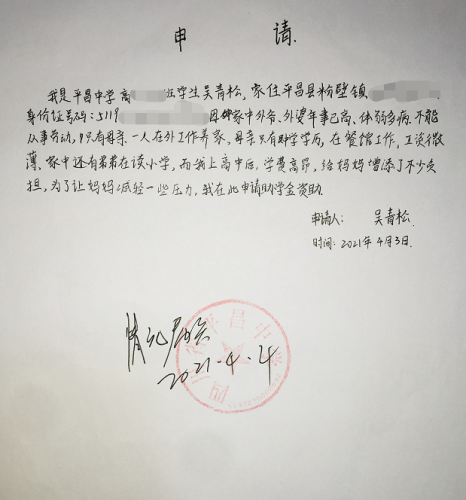 申 请
我是平昌中学高 班学生吴青松,家住平昌县粉壁镇
身份证号码:5119 因家中外爷、外婆年事已高、体弱多病,不能
从事劳动,只有母亲一人在外工作养家。母亲只有小学学历,在餐馆工作,工资微
薄、家中还有弟弟在读小学,而我上高中后,学费高昂,给妈妈增添了不少负
担,为了让妈妈减轻一些压力,我在此申请助学金资助。
申请人: 吴青松.
时间: 2021年4月3日.
情况属实
2021.4.4
四川省平昌中学